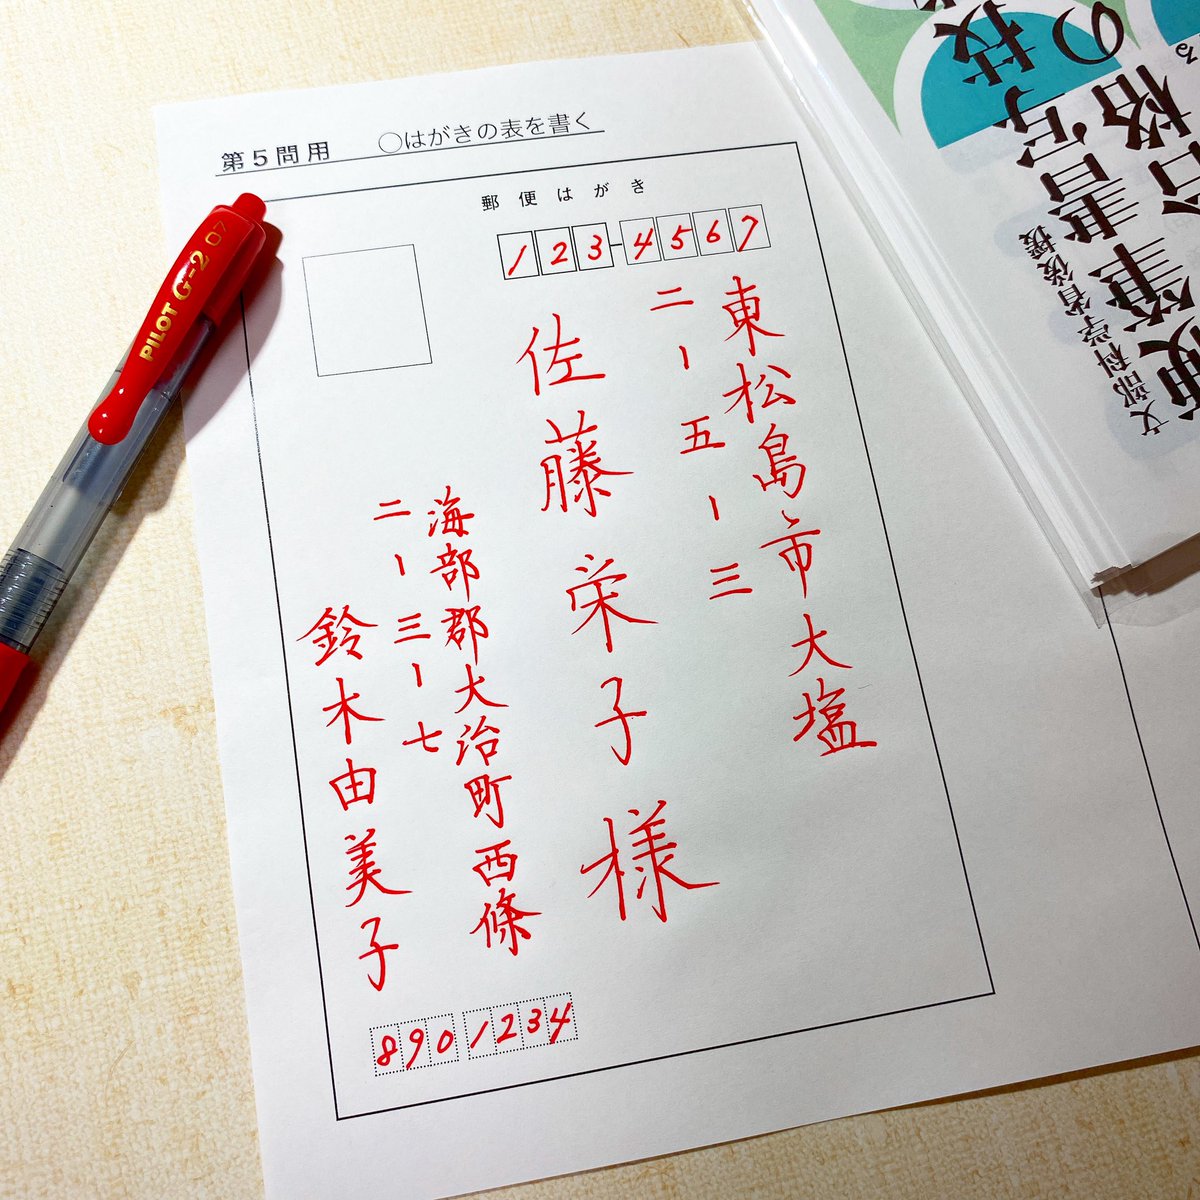 第5問用　○はがきの表を書く
郵便はがき
123-4567
東松島市大塩
二ー五ー三
佐藤栄子様
海部郡大治町西條
二ー三ー七
鈴木由美子
8901234
PILOT G-2 07
の技
硬筆書写技
合格の
文部科学省後援
る